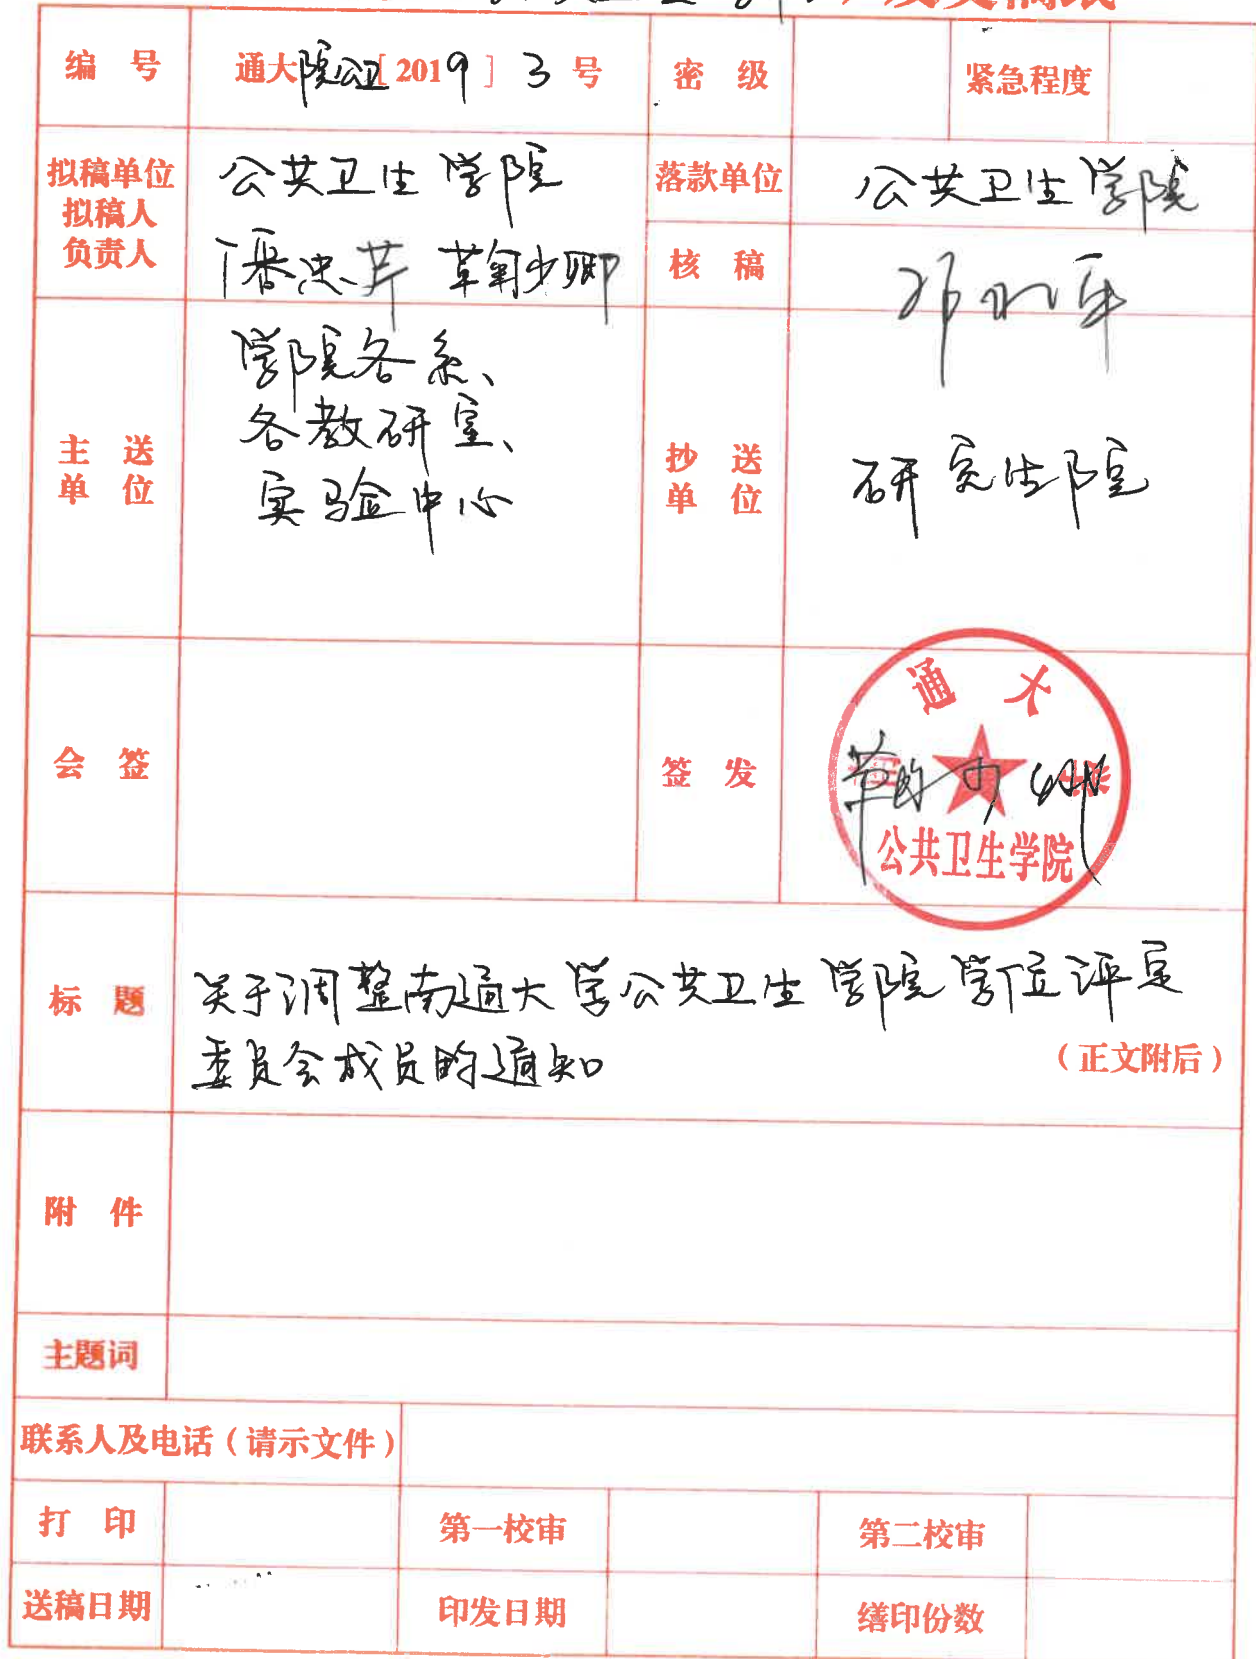 发文稿纸
编 号 通大院公卫[2019]3号 密 级 紧急程度
拟稿单位 公共卫生学院 落款单位 公共卫生学院
拟稿人
负责人 潘忠芹 核 稿
学院各系、
各教研室、
实验中心
主 送
单 位
抄 送
单 位
研究生院
会 签 签 发
通 大
公共卫生学院
标 题 关于调整南通大学公共卫生学院学位评定
委员会成员的通知 (正文附后)
附 件
主题词
联系人及电话(请示文件)
打 印 第一校审 第二校审
送稿日期 印发日期 缮印份数